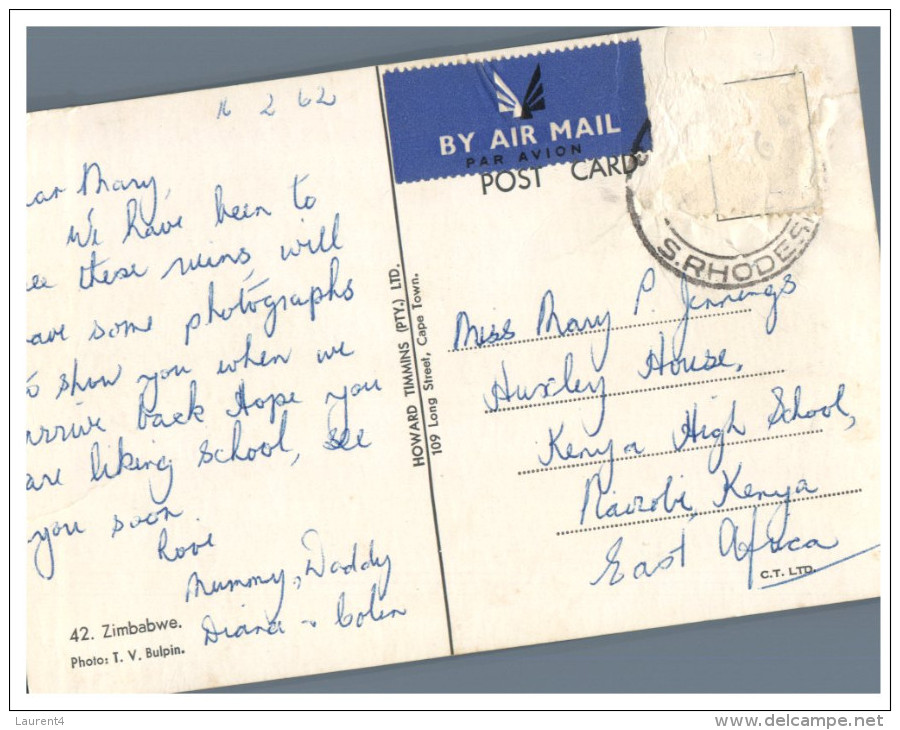 16 2 62
ear Mary,
We have been to
ee these ruins, will
ave some photographs
to show you when we
arrive back Hope you
are liking school, see
you soon
Love
Mummy, Daddy
Diana & Colin
42. Zimbabwe.
Photo: T. V. Bulpin.
HOWARD TIMMINS (PTY.) LTD.
109 Long Street, Cape Town.
BY AIR MAIL
PAR AVION
POST CARD
S. RHODES
Miss Mary P. Jennings
Huxley House,
Kenya High School,
Nairobi, Kenya
East Africa
C.T. LTD.
Laurent4
www.delcampe.net